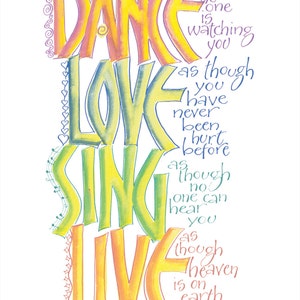 DANCE
one
is
watching
you
LOVE
as though
you
have
never
been
hurt
before
SING
as
though
no
one can
hear
you
LIVE
as
though
heaven
is on
earth